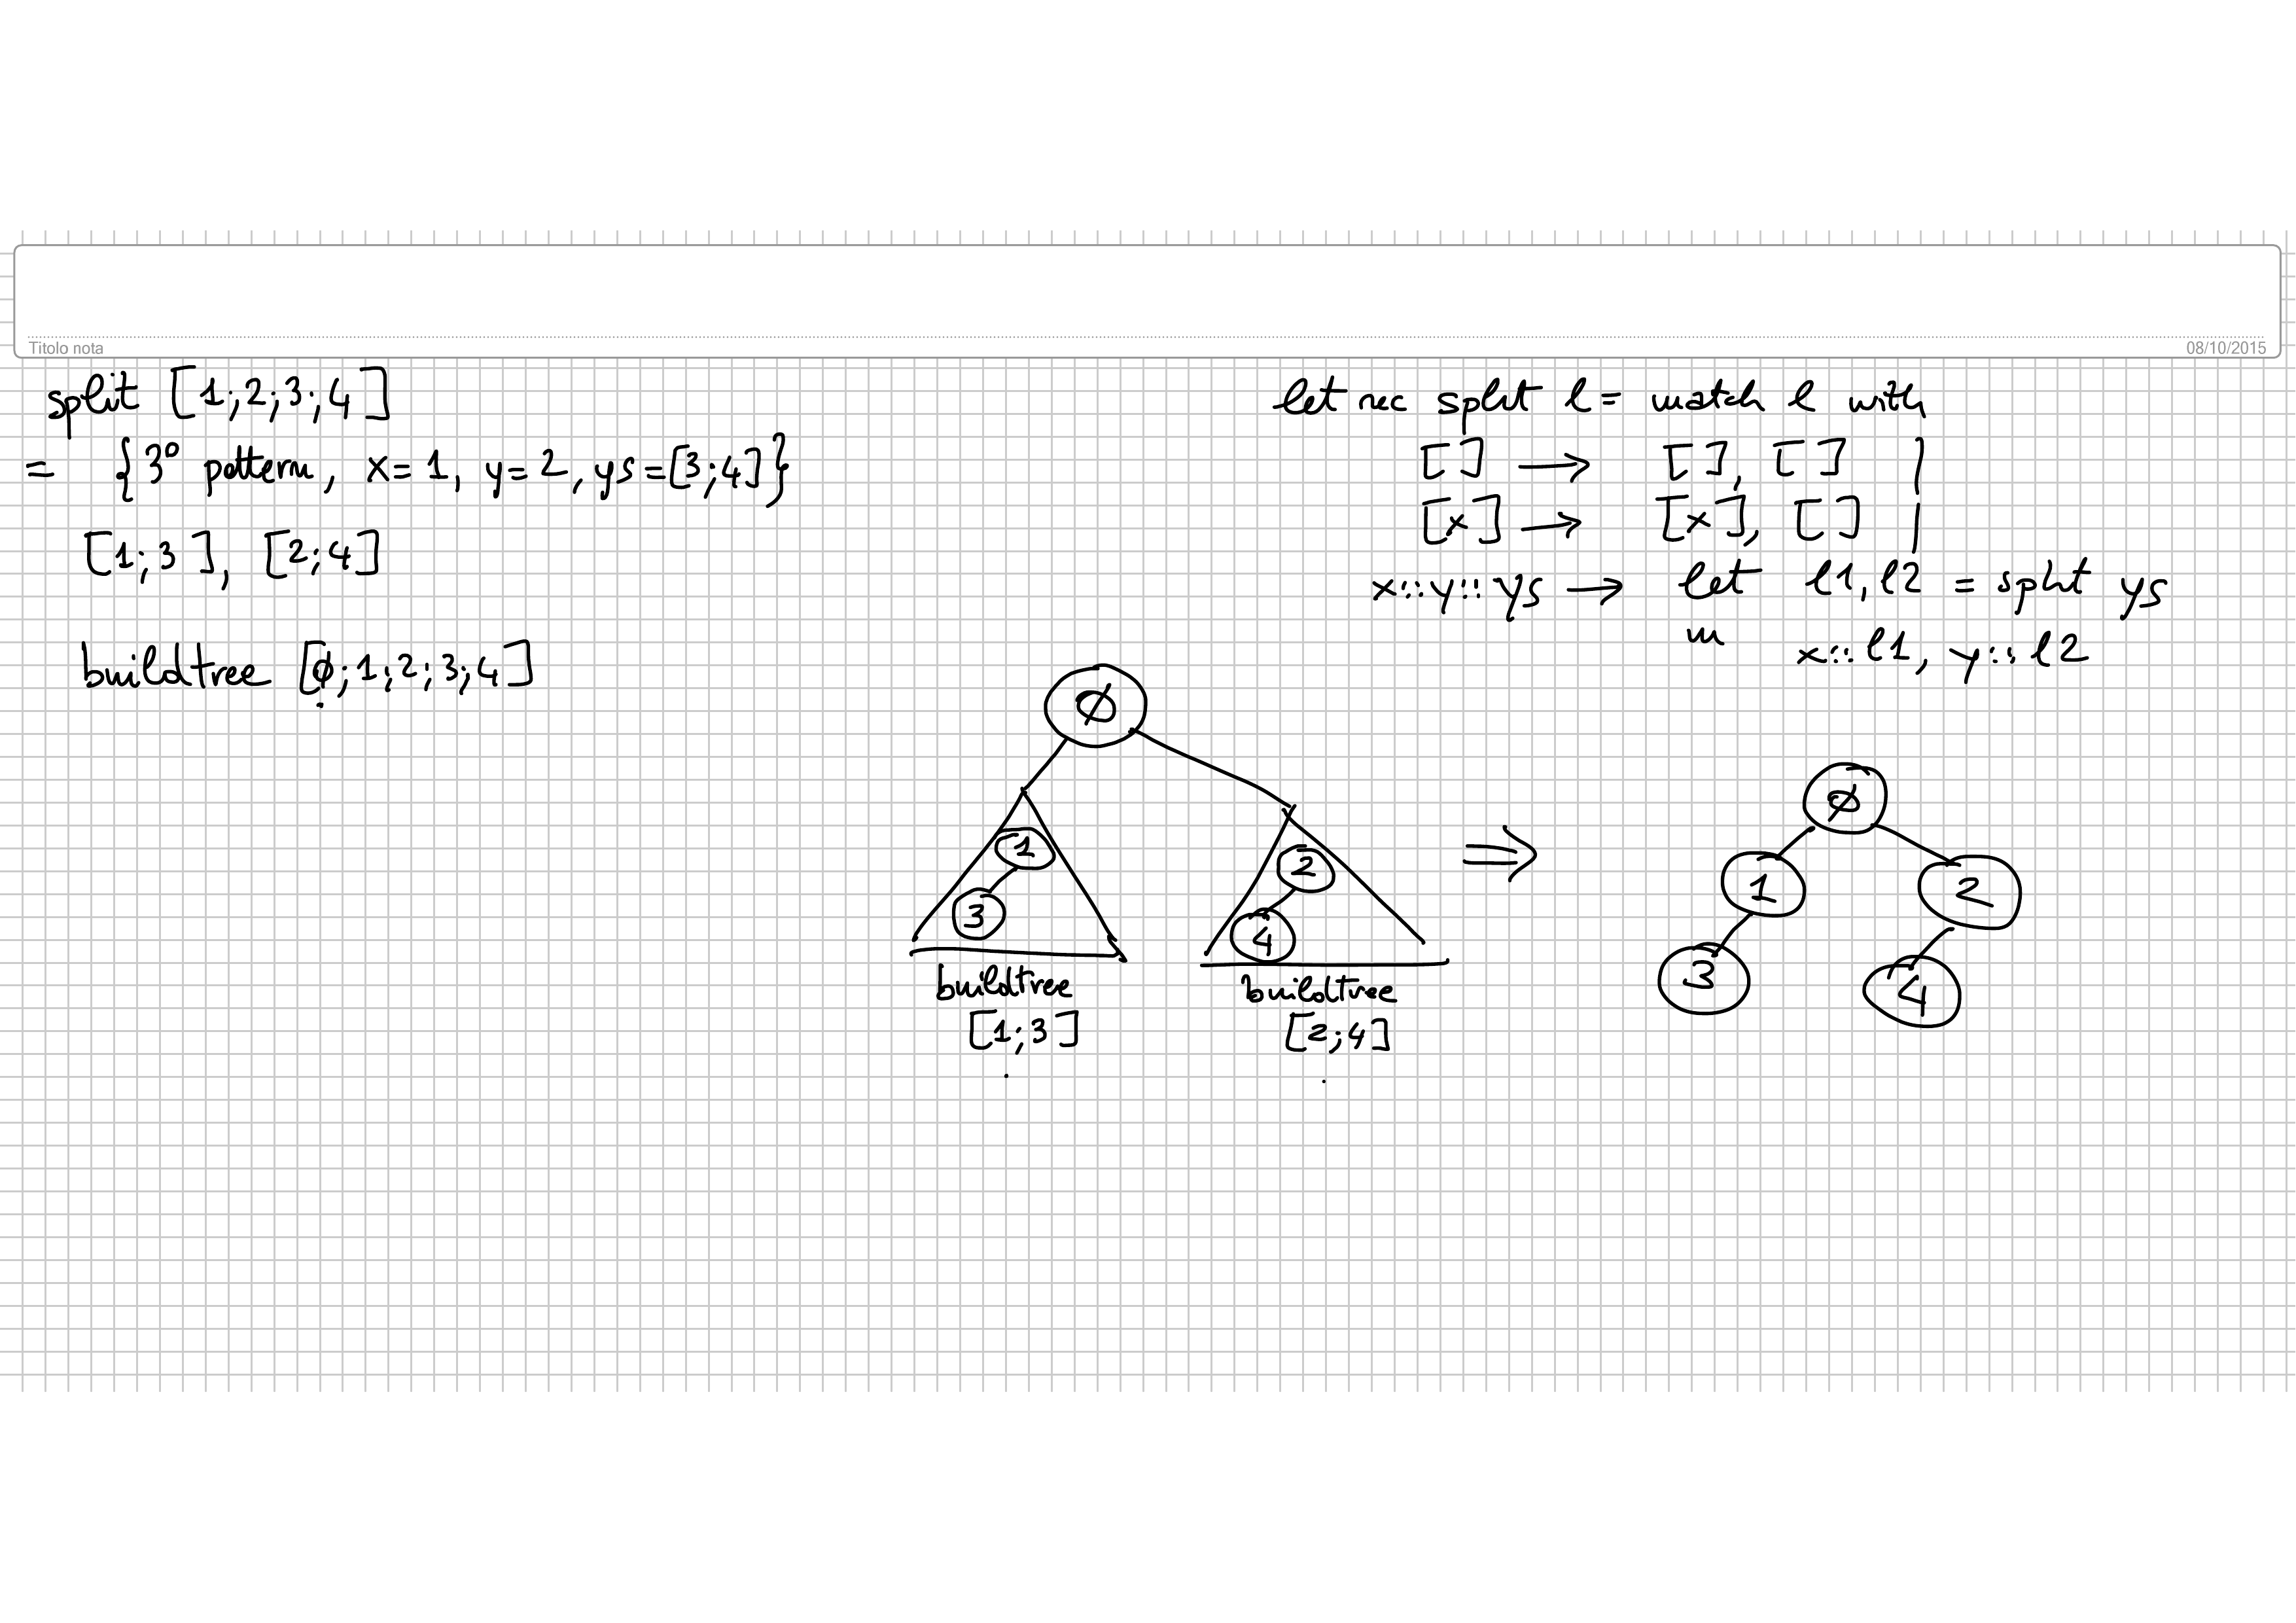 Titolo nota
08/10/2015
split [1;2;3;4]
= {3° pattern, x=1, y=2, ys=[3;4]}
[1;3], [2;4]
buildtree [∅;1;2;3;4]
let rec split l = match l with
[] → [], [] |
[x] → [x], [] |
x::y::ys → let l1, l2 = split ys
in x::l1, y::l2
∅
1
3
buildtree
[1;3]
2
4
buildtree
[2;4]
⇒
∅
1 2
3 4